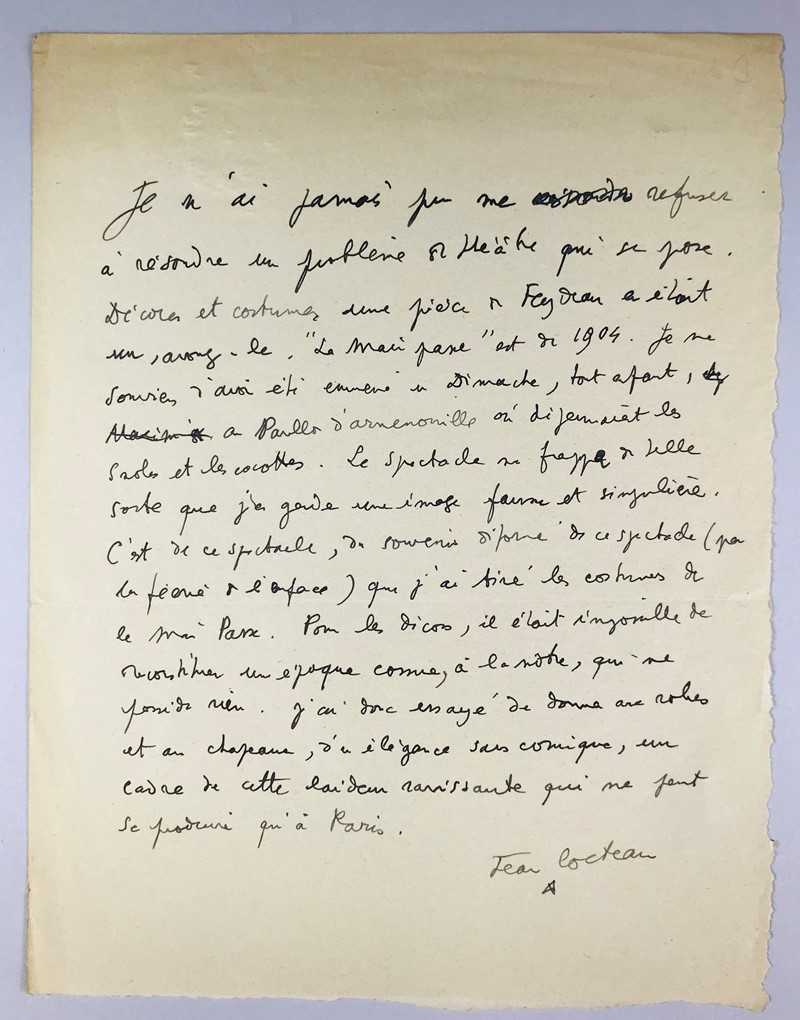 Je n'ai jamais pu me refuser
à résoudre un problème de théâtre qui se pose.
Décors et costumes d'une pièce de Feydeau en était
un, avouez-le. "La Main passe" est de 1904. Je me
souviens d'avoir été emmené un Dimanche, tout enfant,
au Pavillon d'armenonville où déjeunaient les
snobs et les cocottes. Le spectacle me frappa de telle
sorte que j'en garde une image fausse et singulière.
C'est de ce spectacle, du souvenir déformé de ce spectacle (par
la féerie de l'enfance) que j'ai tiré les costumes de
la Main Passe. Pour les décors, il était impossible de
reconstituer une époque cossue, à la nôtre, qui ne
possède rien. J'ai donc essayé de donner aux robes
et aux chapeaux, d'une élégance sans comique, un
cadre de cette laideur ravissante qui ne peut
se produire qu'à Paris.
Jean Cocteau